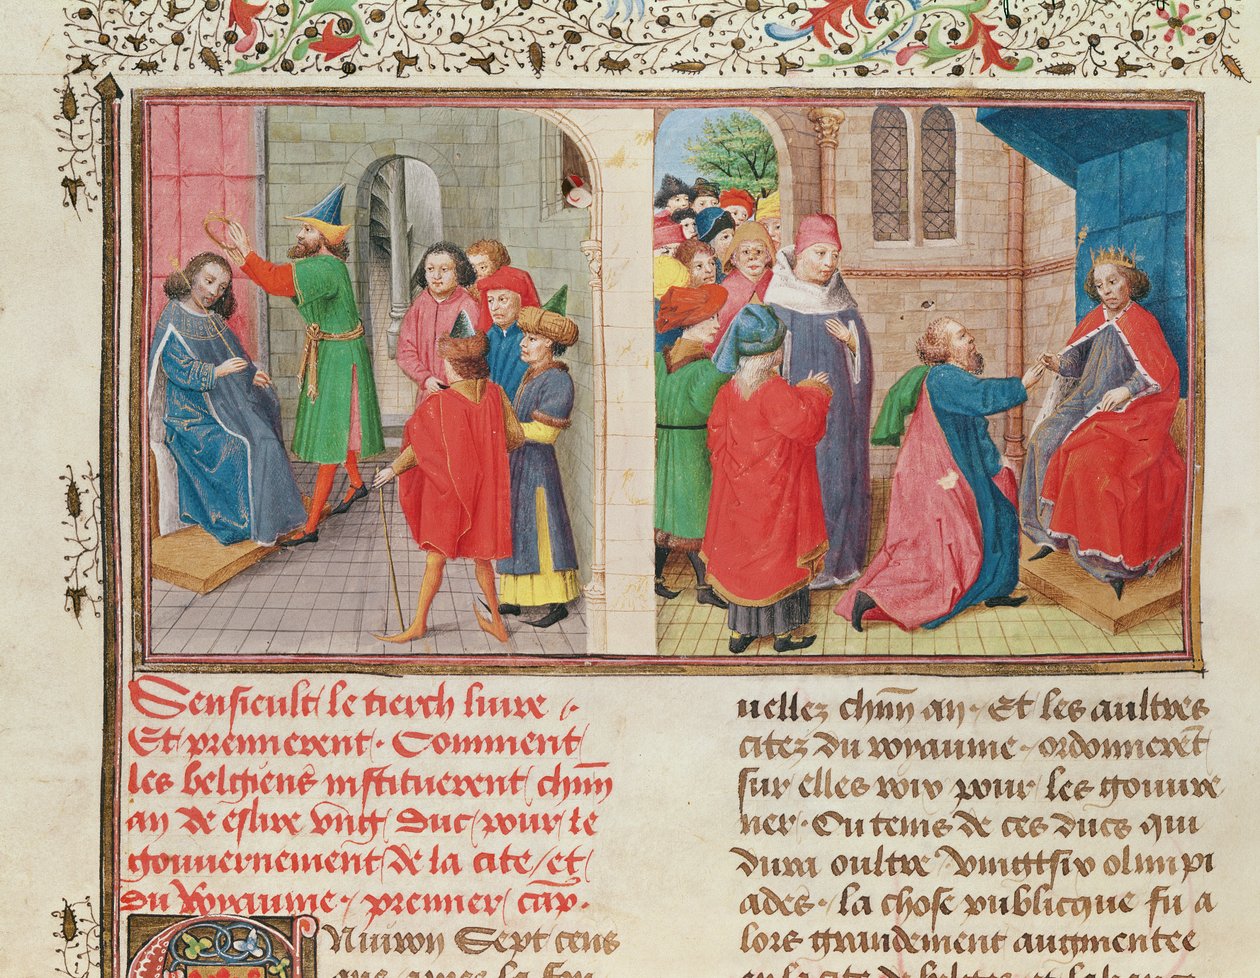 Sensieult le tierch livre.
Et premierement. Comment
les belgiens instituerent chm̄
an de eslire vng duc pour le
gouuernement de la cite et
du Royaume. premier cap̄.
Nuiron sept cens
ans apres la
uellez chm̄ an. Et les aultres
citez du royaume ordonneret̄
sur elles roix pour les gouuer
ner. Ou tems de ces ducs qui
dura oultre vingtsix olimpi
ades. la chose publicque fu a
lors grandement augmentee
en la cite de belges et